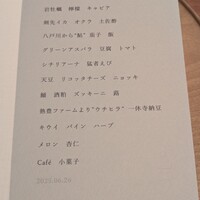 岩牡蠣 檸檬 キャビア
時先イカ オクラ 土佐酢
八戸川から"鮎" 茄子 飯
グリーンアスパラ 豆腐 トマト
シチリアーナ 猛者えび
天豆 リコッタチーズ ニョッキ
鱸 酒粕 ズッキーニ 茴
熊豊ファームより"ウチヒラ" 一休寺納豆
キウイ パイン ハーブ
メロン 杏仁
Café 小菓子
2025.06.26